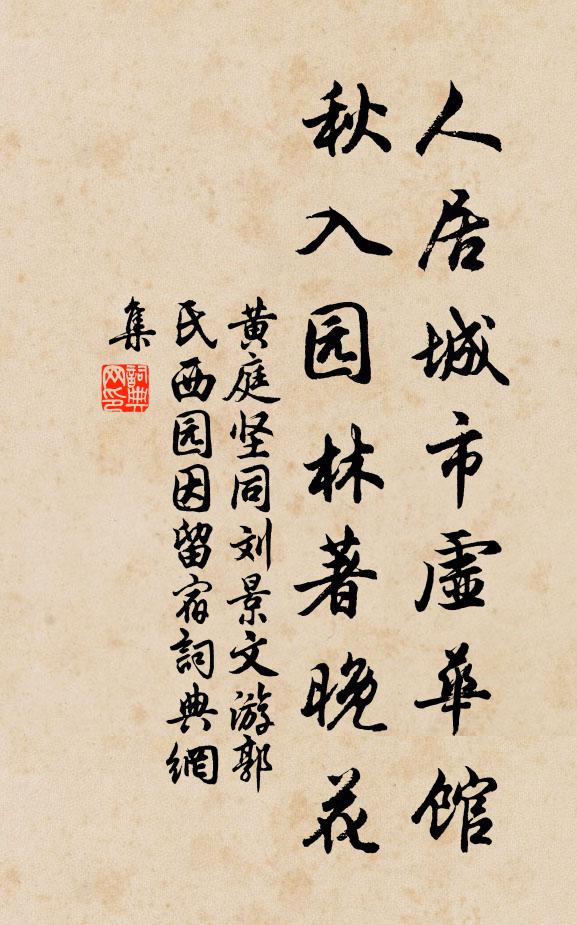 人居城市虚華馆
秋入园林著晚花
黄庭坚同刘景文游郭
氏西园因留宿詞典網
集
詞典網印